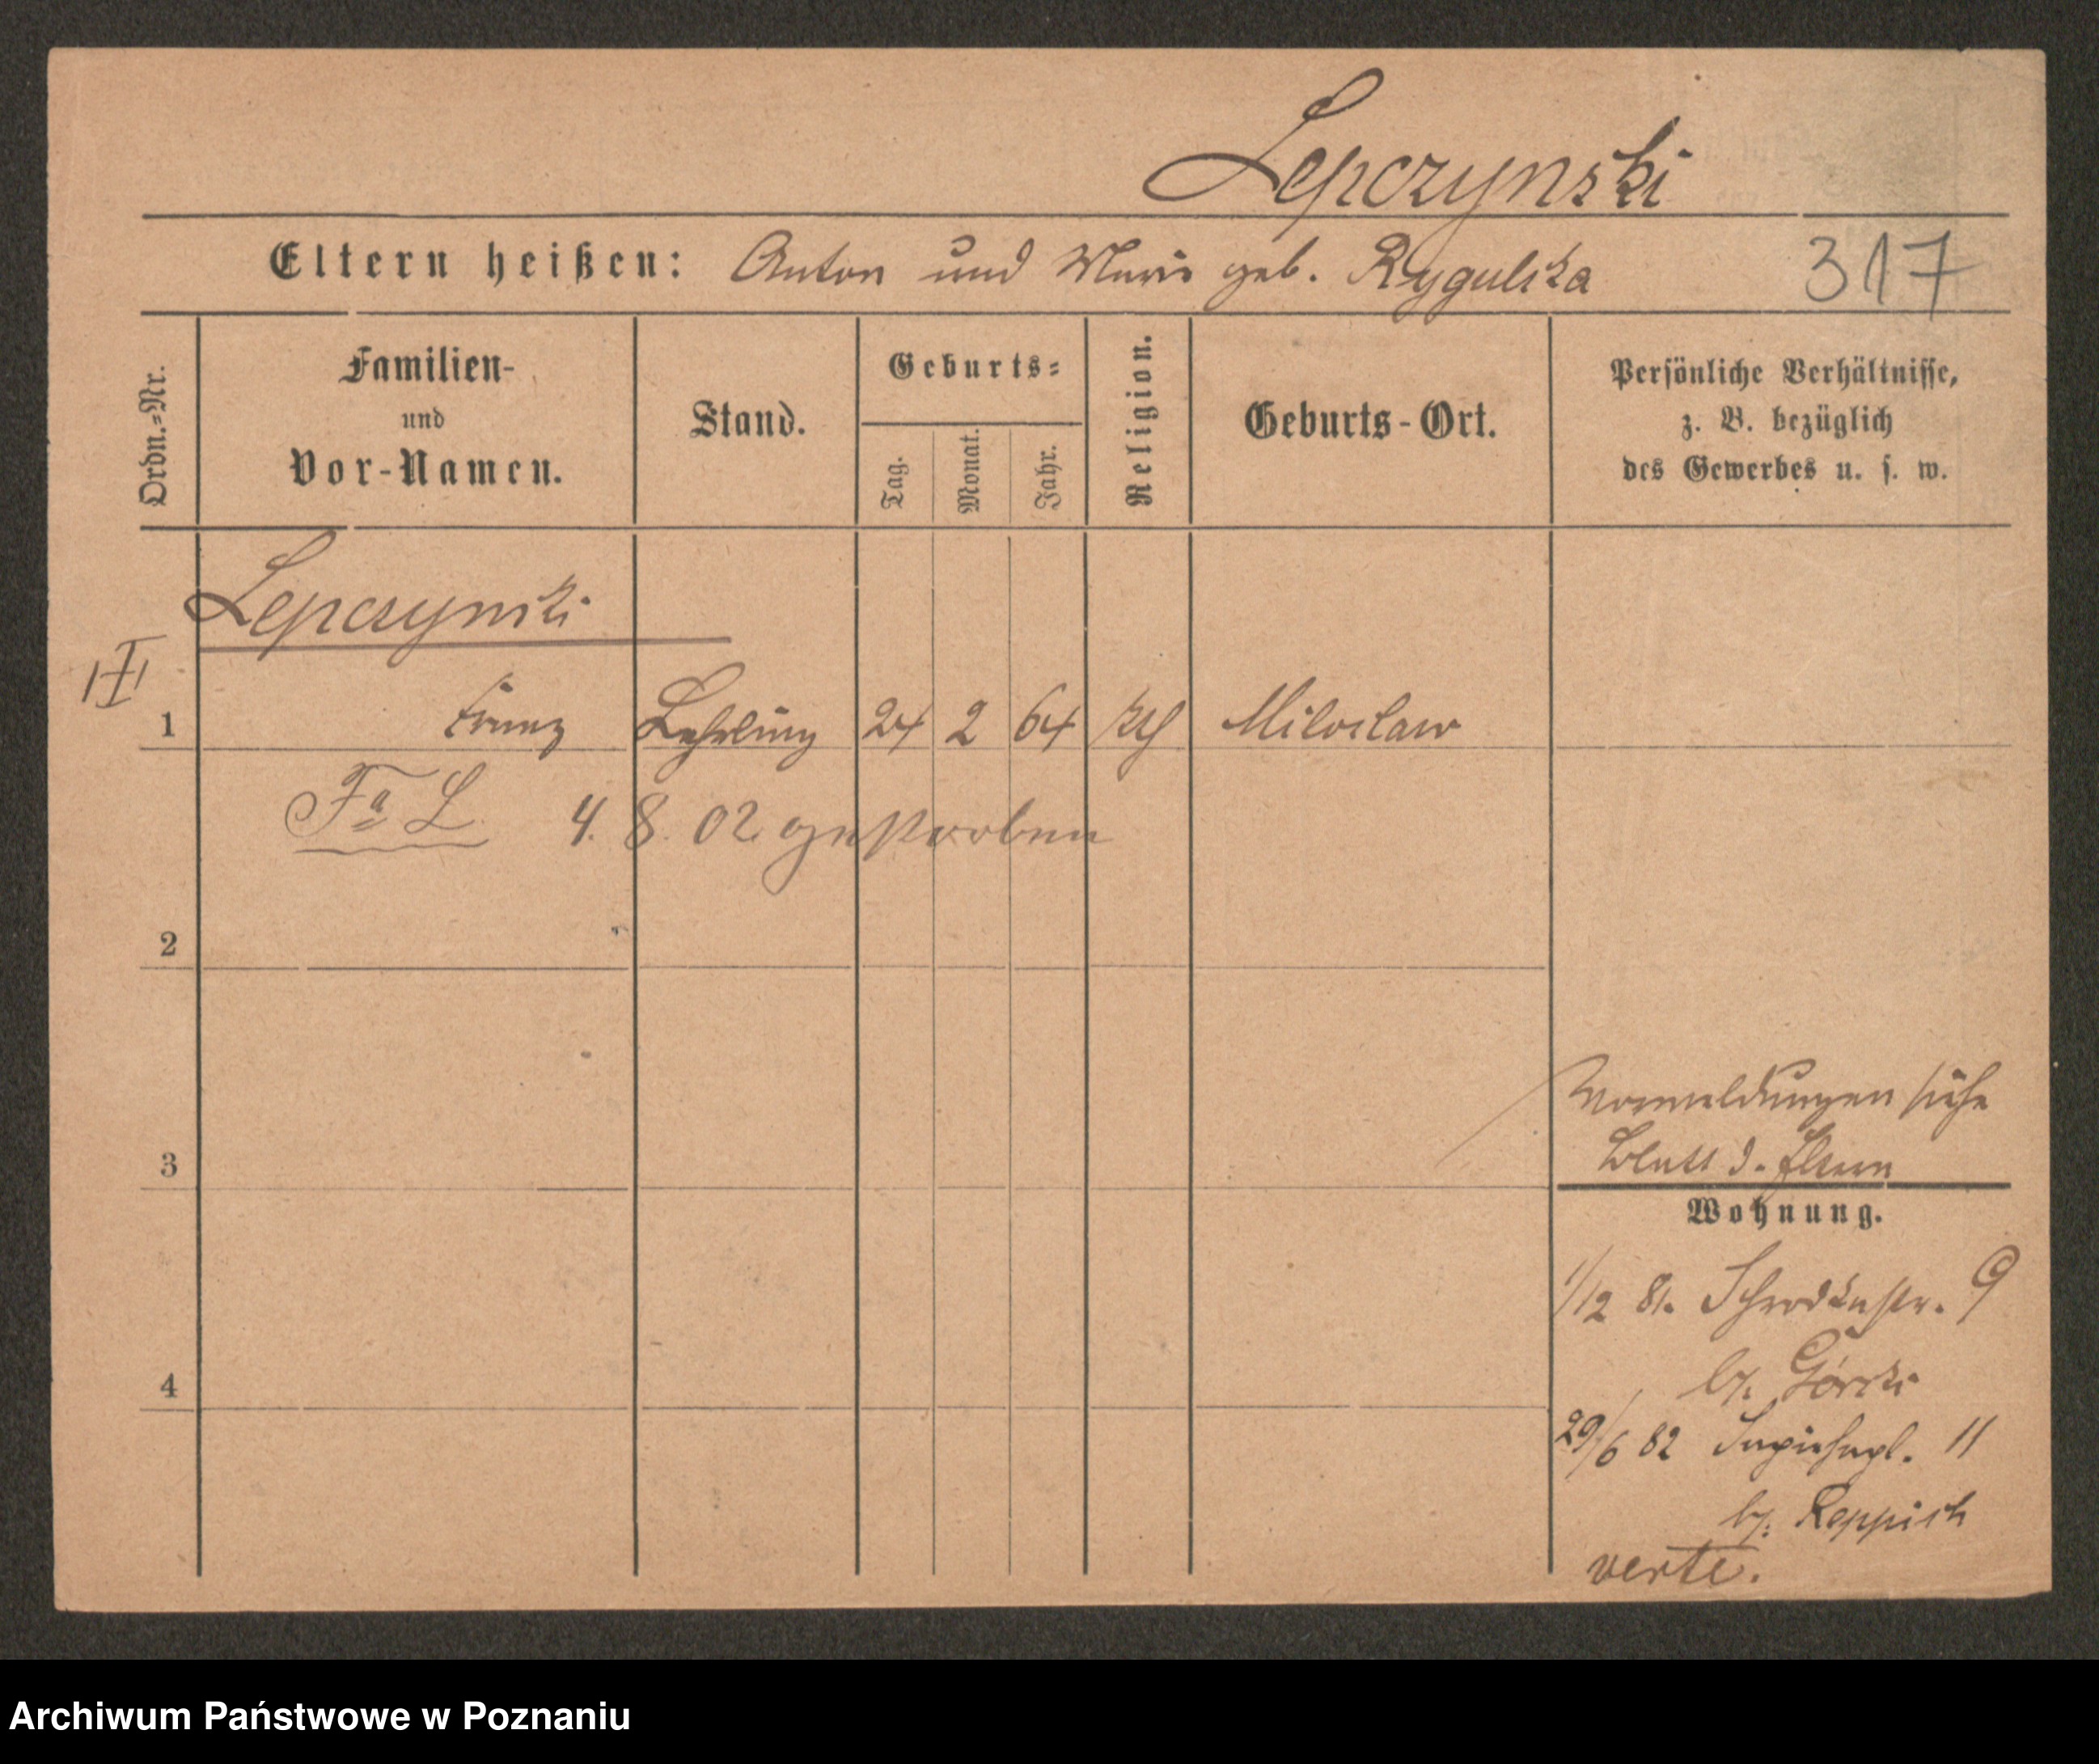 Lepczynski
Eltern heißen: Anton und Marie geb. Rygulska 317
Ordn.-Nr.
Familien-
und
Vor-Namen.
Stand.
Geburts-
Tag.
Monat.
Jahr.
Religion.
Geburts-Ort.
Persönliche Verhältnisse,
z. B. bezüglich
des Gewerbes u. s. w.
Lepczynski
1 Franz Lehrling 24 2 64 kth Miloslaw
Fa L 4. 8. 02 gestorben
2
3
4
Vormeldungen siehe
Blatt d. Eltern
Wohnung.
1/12 81. Schrodkastr. 9
b. Górski
29/6 82 Sapiehapl. 11
b. Reppich
verte.
Archiwum Państwowe w Poznaniu